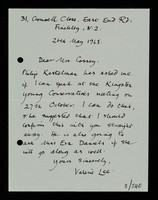 31, Connell Close, East End Rd.
Finchley, N.2.
20th May 1968.
Dear Mrs. Cossey,
Philip Kestelman has asked me
if I can speak at the Kingston
Young Conservatives meeting on
27th October. I can do this,
& he suggested that I should
confirm this with you straight
away. He is also going to
ask Mrs Eva Daniels if she
will go along as well.
Yours sincerely,
Valerie Lee